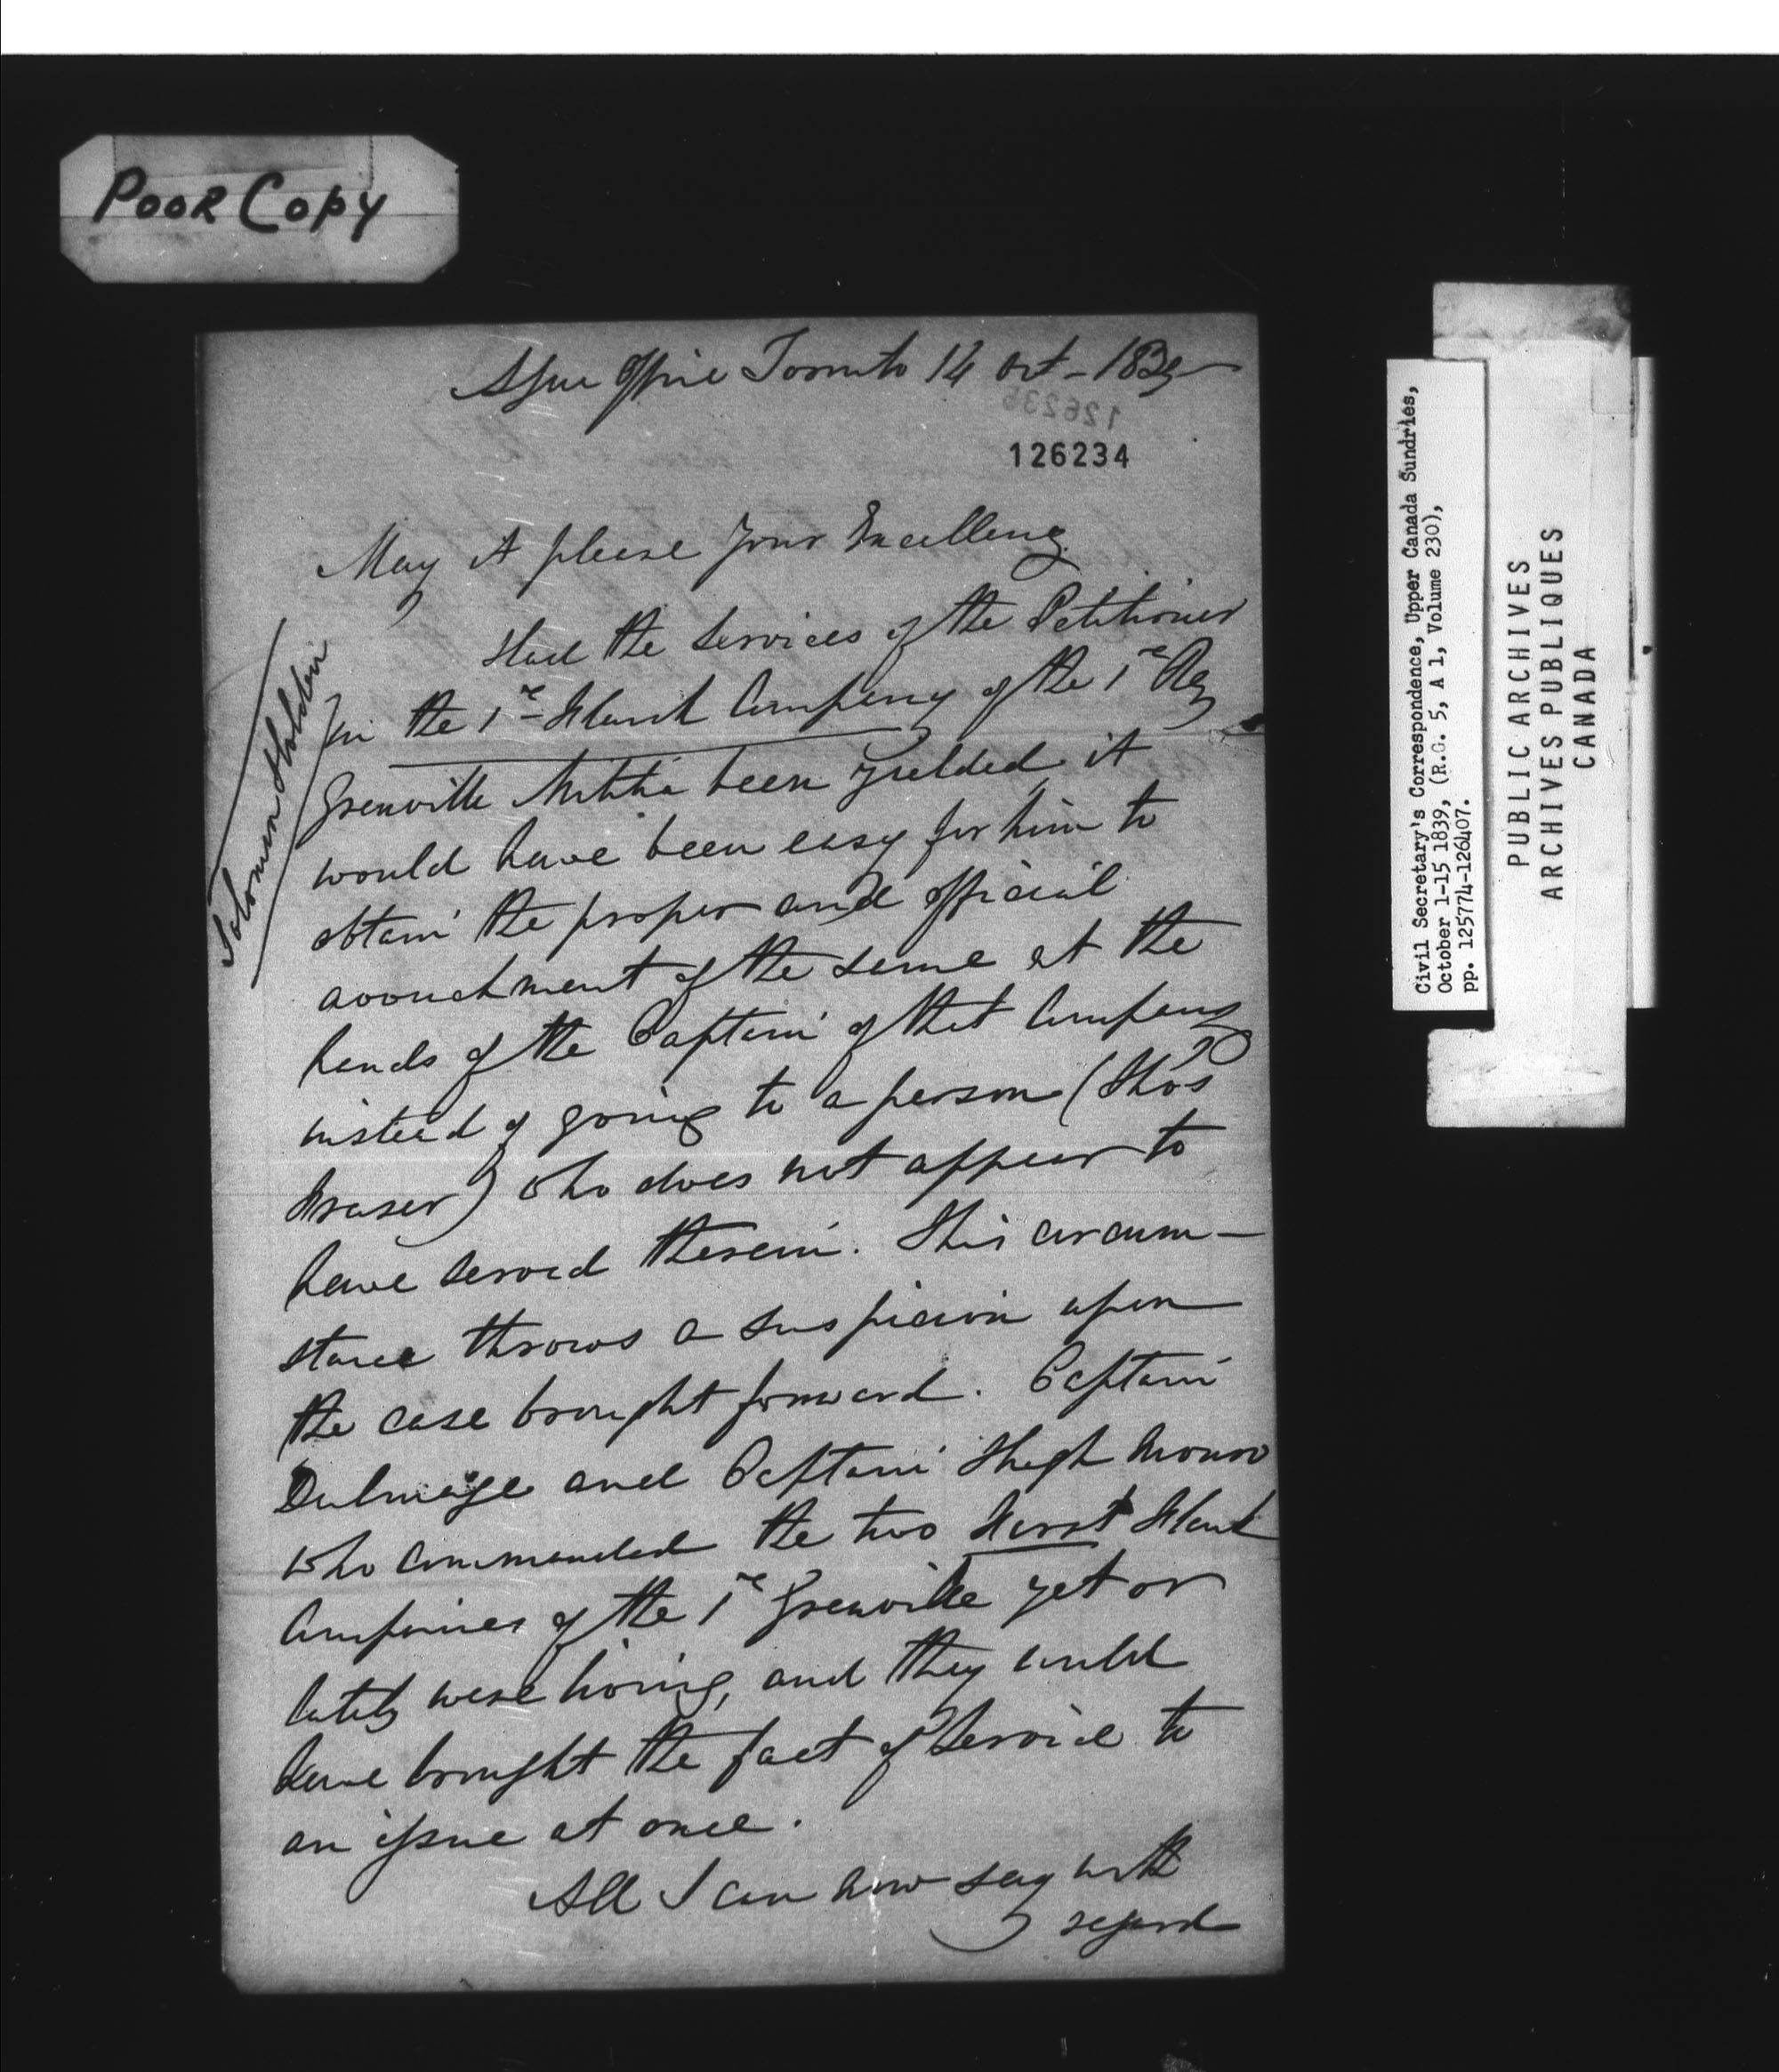 POOR COPY
A Genl Office Toronto 14 Oct - 1839
126235
126234
May it please Your Excellency
Had the Services of the Petitioner
in the 1st Flank Company of the 1st Reg
Grenville Militia been yielded it
would have been easy for him to
obtain the proper and official
avouchment of the same at the
hands of the Captain of that Company
instead of going to a person (Thos
Fraser) who does not appear to
have served therein. This circum-
stance throws a suspicion upon
the case brought forward. Captain
Dulmage and Captain Hugh Monro
who commanded the two First Flank
Companies of the 1st Grenville yet or
lately were living, and they could
have brought the fact of Service to
an issue at once.
All I can now say with
regard
Solomon Holden
Civil Secretary's Correspondence, Upper Canada Sundries,
October 1-15 1839, (R.G. 5, A 1, Volume 230),
pp. 125774-126407.
PUBLIC ARCHIVES
ARCHIVES PUBLIQUES
CANADA